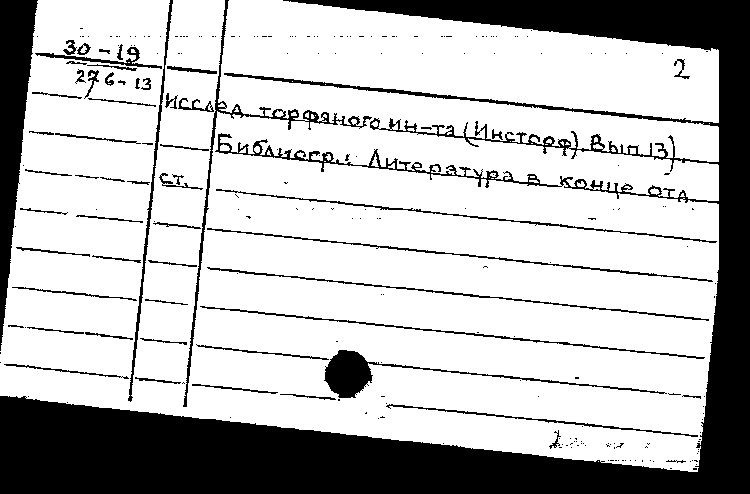 30-19
2
276-13
исслед торфяного ин-та (Инсторф). Вып 13).
Библиогр.: Литература в конце отд
ст.